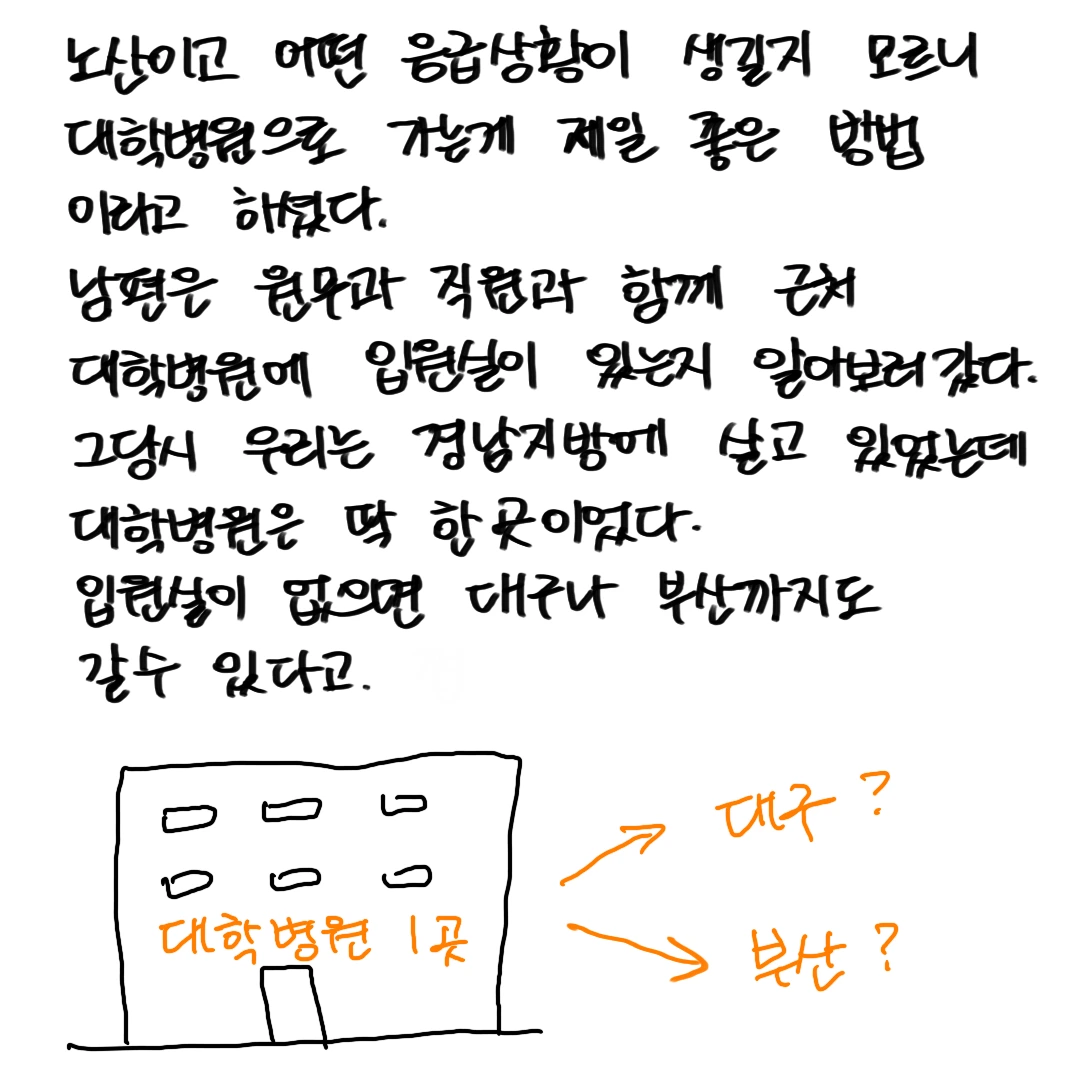 노산이고 어떤 응급상황이 생길지 모르니
대학병원으로 가는게 제일 좋은 방법
이라고 하셨다.
남편은 원무과 직원과 함께 근처
대학병원에 입원실이 있는지 알아보러갔다.
그당시 우리는 경남지방에 살고 있었는데
대학병원은 딱 한곳이었다.
입원실이 없으면 대구나 부산까지도
갈수 있다고.
대구?
대학병원 1곳
부산?